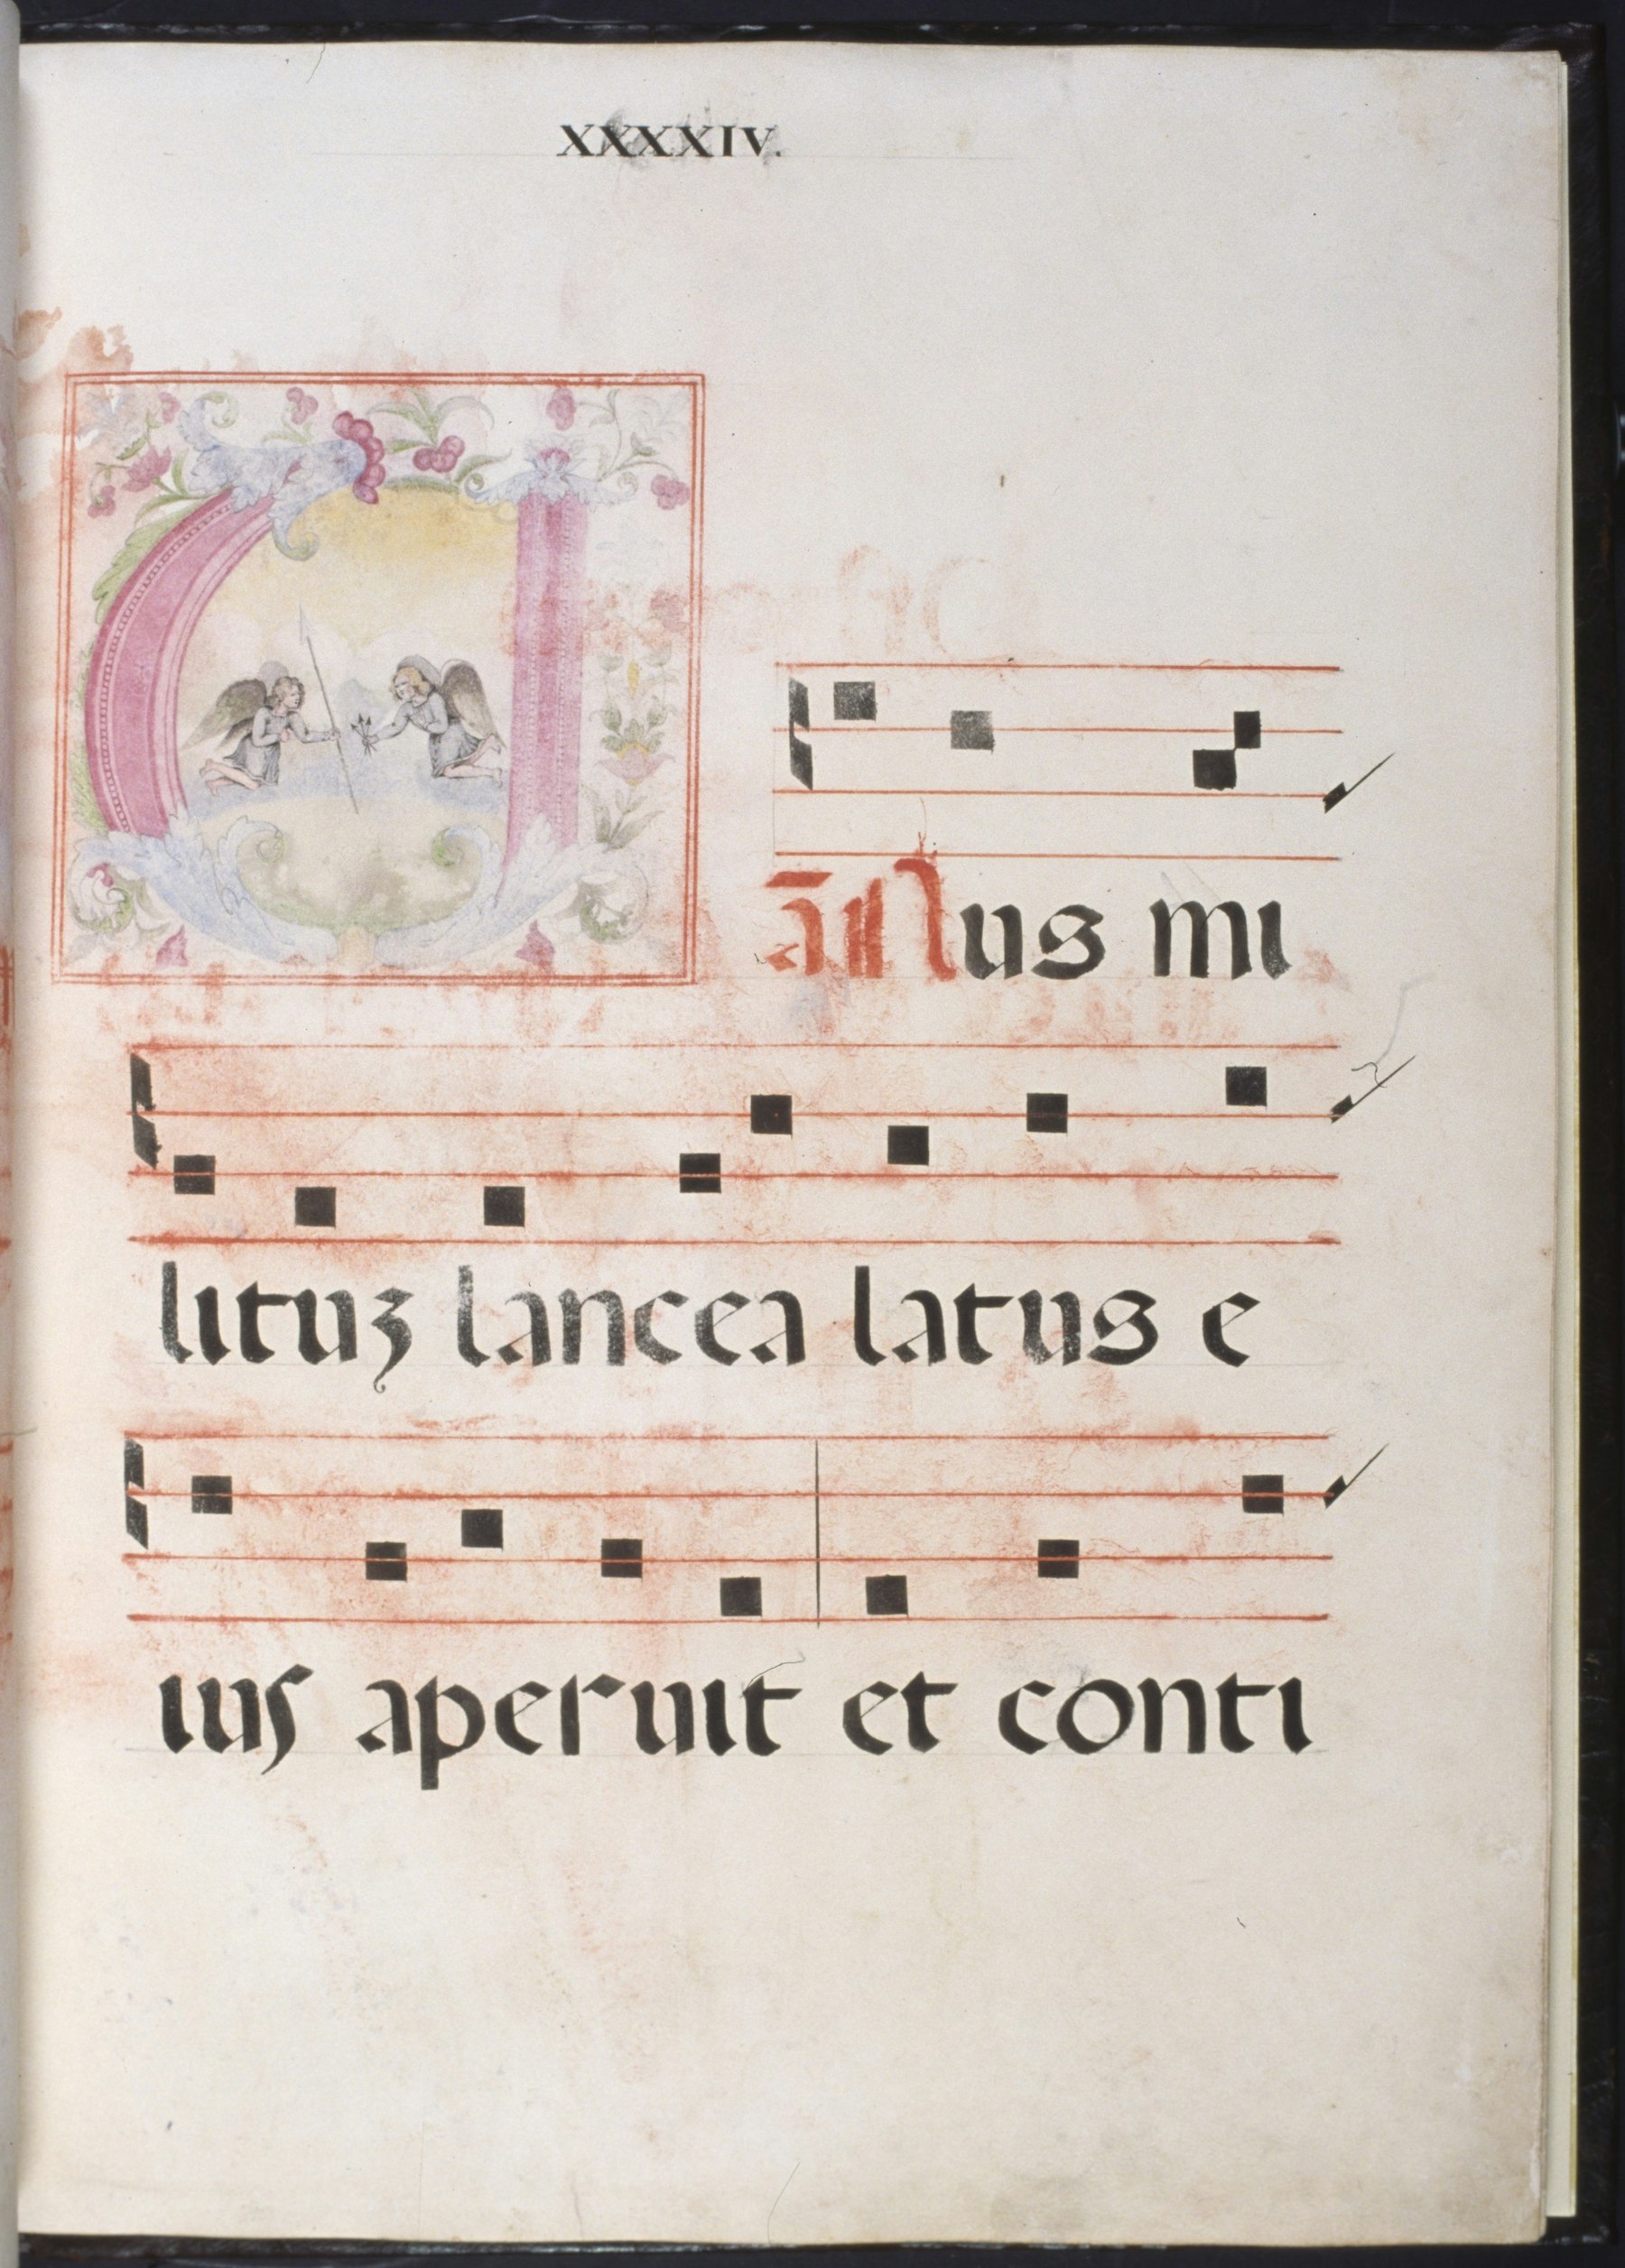 XXXXIV.
Unus mi
lituʒ lancea latus e
ius aperuit et conti